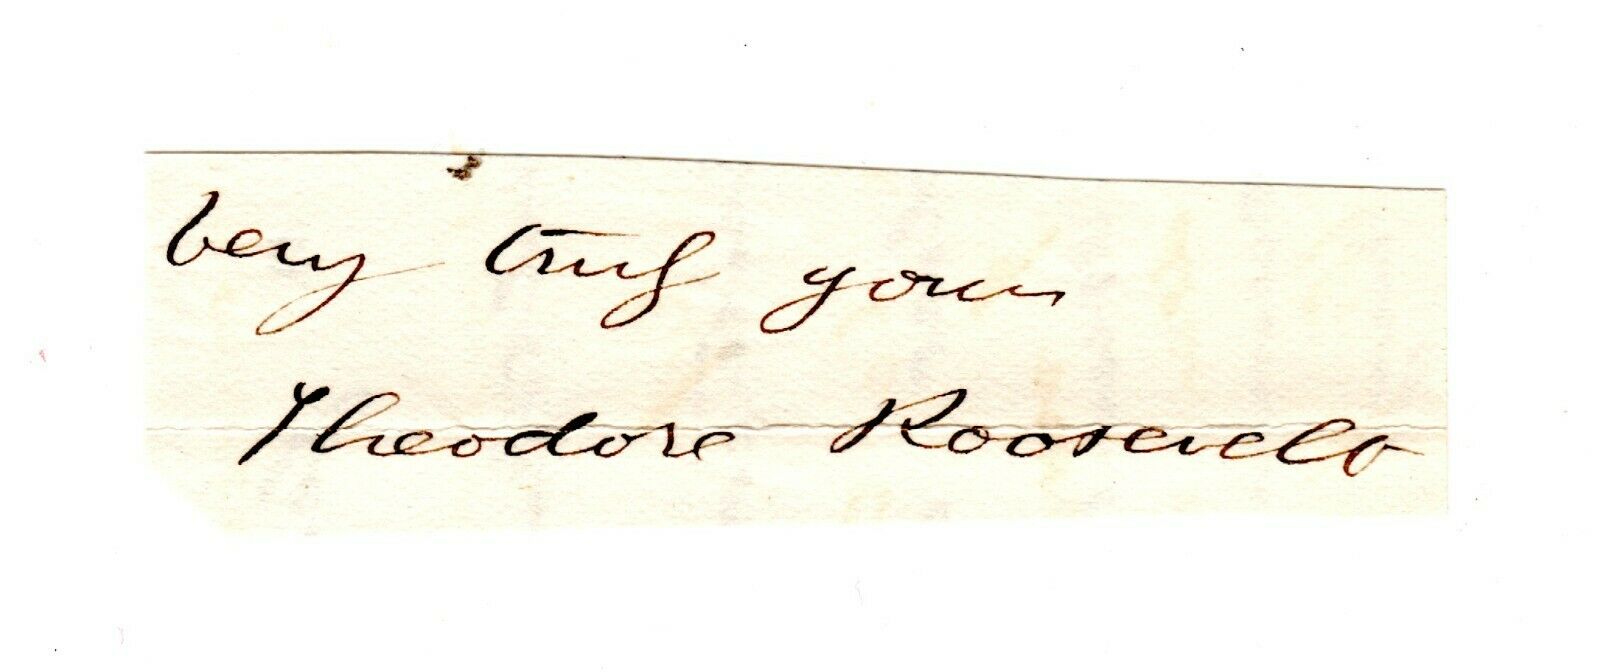 Very truly yours
Theodore Roosevelt